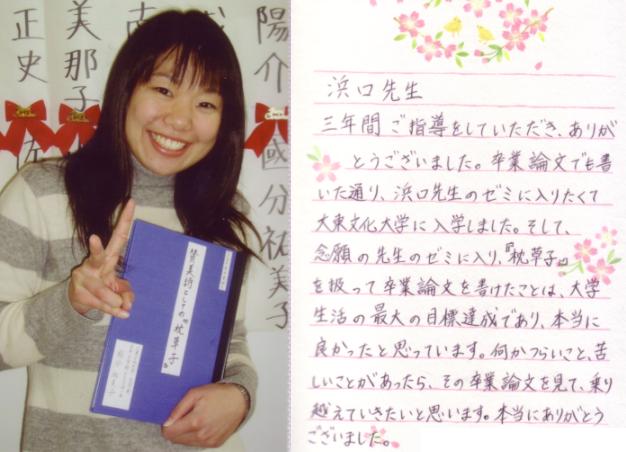 正史
美那子
陽介
國分祐美子
賛美術としての『枕草子』
浜口先生
三年間ご指導をしていただき、ありが
とうございました。卒業論文でも書
いた通り、浜口先生のゼミに入りたくて
大東文化大学に入学しました。そして、
念願の先生のゼミに入り、『枕草子』
を扱って卒業論文を書けたことは、大学
生活の最大の目標達成であり、本当に
良かったと思っています。何かつらいこと、苦
しいことがあったら、その卒業論文を見て、乗り
越えていきたいと思います。本当にありがとう
ございました。